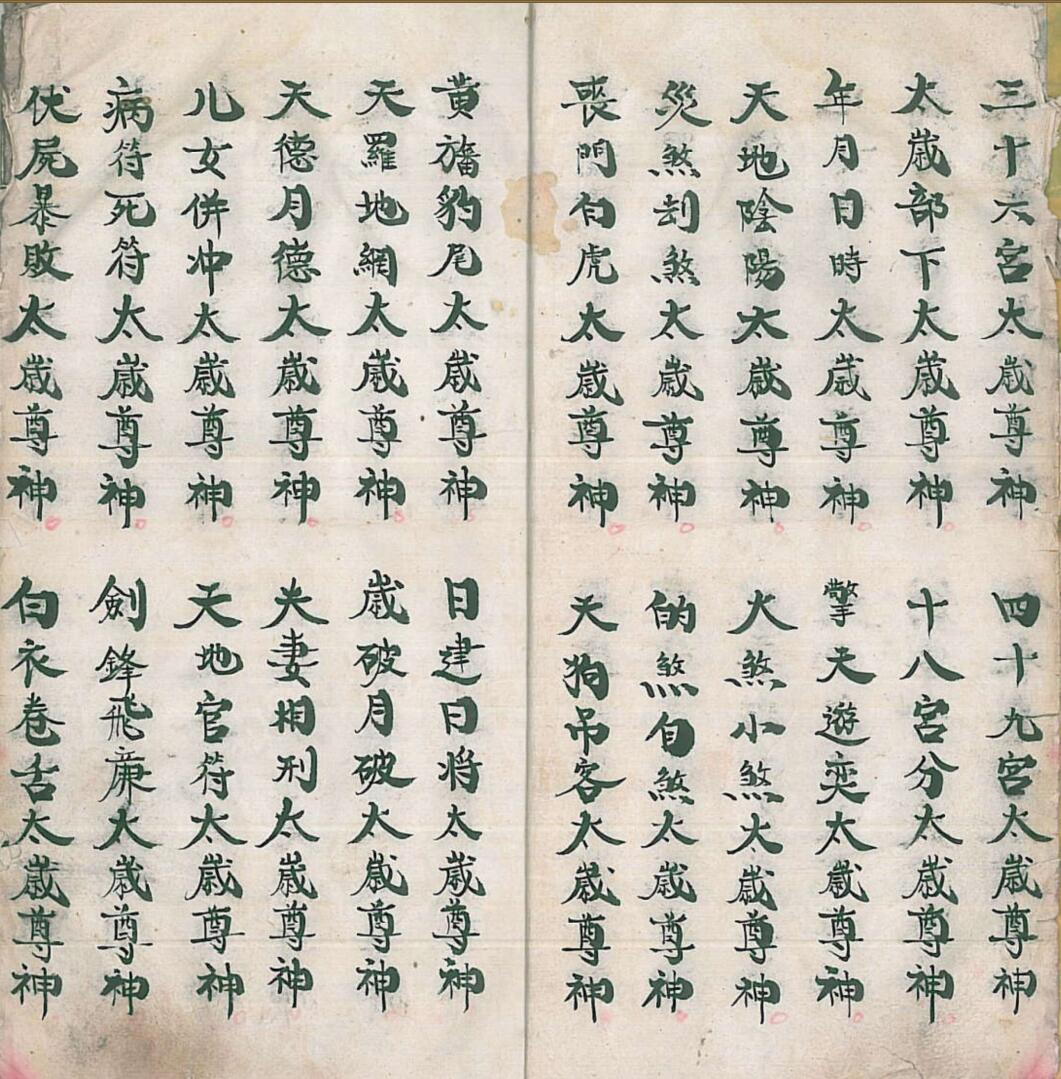 三十六宮太歲尊神
四十九宮太歲尊神
太歲部下太歲尊神
十八宮分太歲尊神
年月日時太歲尊神
擎天遊奕太歲尊神
天地陰陽太歲尊神
大煞小煞太歲尊神
災煞刦煞太歲尊神
的煞自煞太歲尊神
喪門白虎太歲尊神
天狗吊客太歲尊神
黃旛豹尾太歲尊神
日建日将太歲尊神
天羅地網太歲尊神
歲破月破太歲尊神
天德月德太歲尊神
夫妻相刑太歲尊神
儿女併冲太歲尊神
天地官符太歲尊神
病符死符太歲尊神
劍鋒飛廉太歲尊神
伏屍暴敗太歲尊神
白衣卷舌太歲尊神